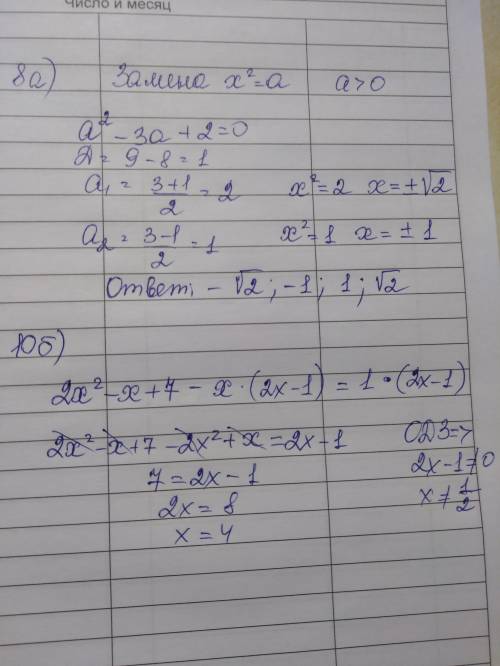 Число и месяц
8а) Замена x²=a a>0
a² - 3a + 2 = 0
Д = 9 - 8 = 1
a₁ = (3+1)/2 = 2 x² = 2 x = ±√2
a₂ = (3-1)/2 = 1 x² = 1 x = ± 1
Ответ: - √2 ; -1 ; 1 ; √2
10б)
2x² - x + 7 - x · (2x - 1) = 1 · (2x - 1)
2x² - x + 7 - 2x² + x = 2x - 1 ОДЗ =>
7 = 2x - 1 2x - 1 ≠ 0
2x = 8 x ≠ 1/2
x = 4